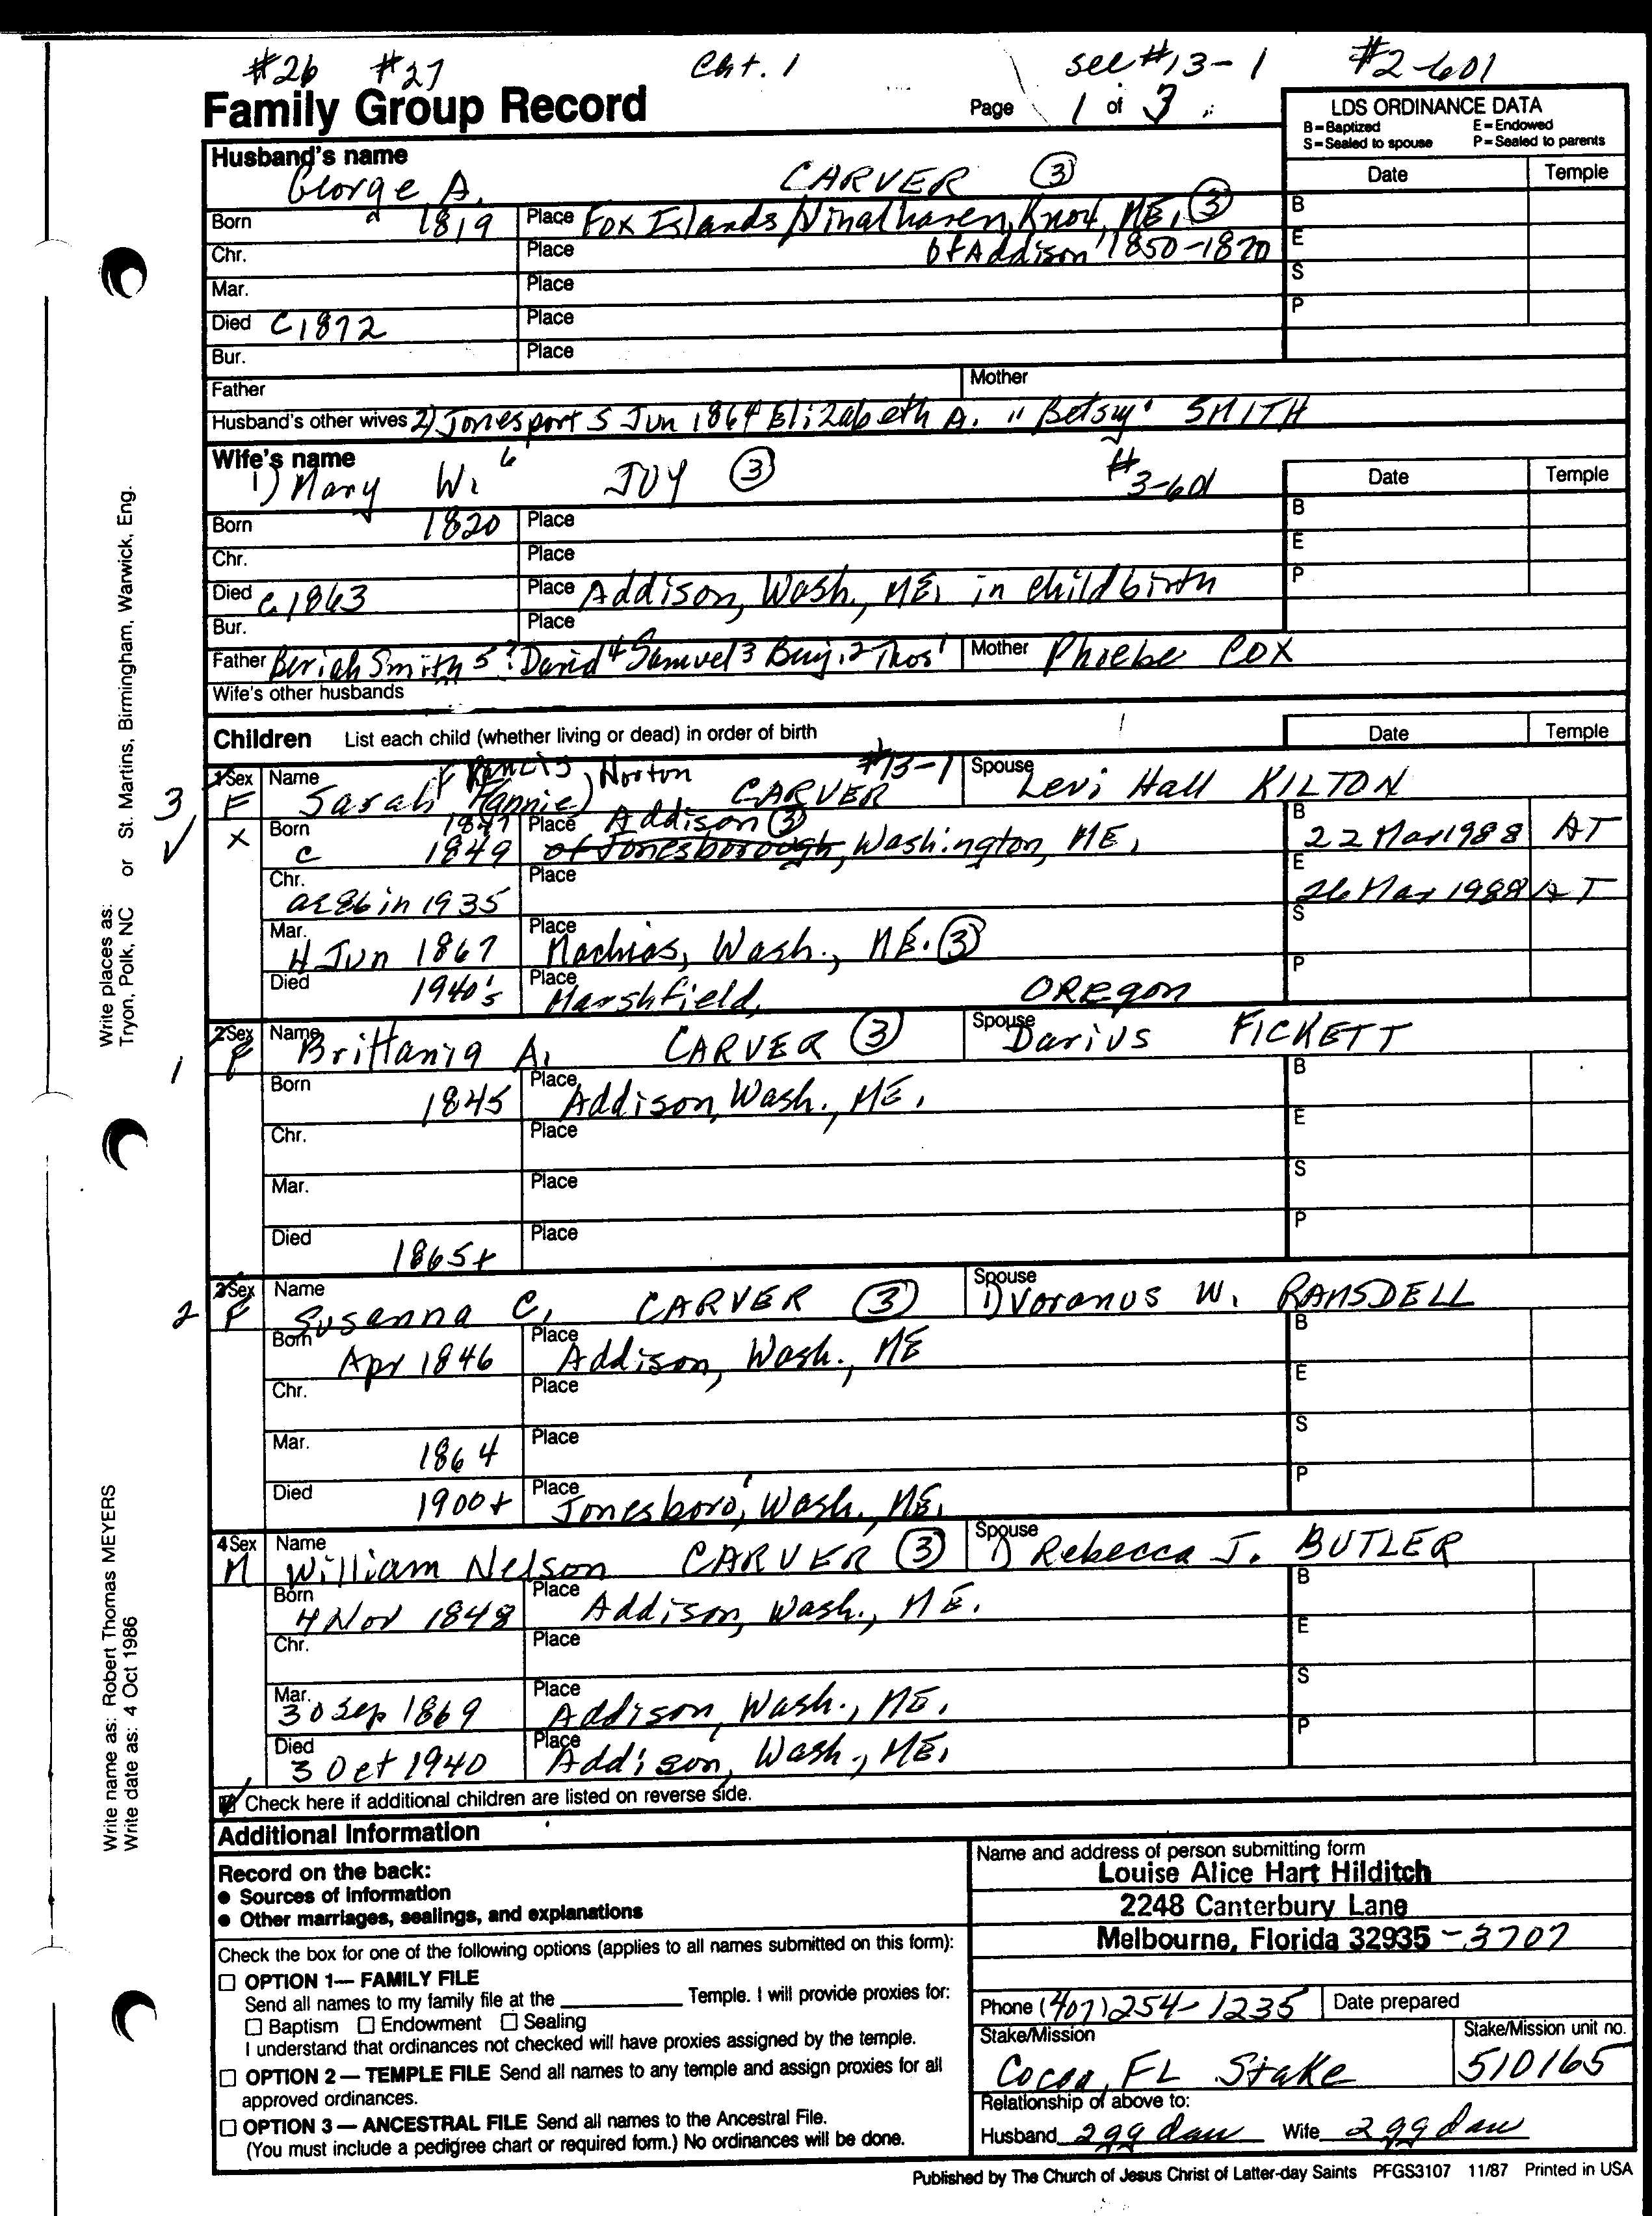 #26 #27 Cht. 1 see #13-1 #2-601
Family Group Record Page 1 of 3
LDS ORDINANCE DATA
B=Baptized E=Endowed
S=Sealed to spouse P=Sealed to parents
Husband's name George A. CARVER ③ Date Temple
Born 1819 Place Fox Islands/Vinalhaven, Knox, ME. ③ B
Chr. Place of Addison 1850-1870 E
Mar. Place S
Died C1872 Place P
Bur. Place
Father Mother
Husband's other wives 2) Jonesport 5 Jun 1864 Elizabeth A. "Betsy" SMITH
Wife's name 1) Mary W. 6 JOY ③ #3-601 Date Temple
Born 1820 Place B
Chr. Place E
Died c. 1863 Place Addison, Wash., ME. in childbirth P
Bur. Place
Father Beriah Smith 5? David 4 Samuel 3 Benj. 2 Thos 1 Mother Phoebe COX
Wife's other husbands
Children List each child (whether living or dead) in order of birth Date Temple
3 1 Sex F Name Sarah Francis, Norton (Fannie) CARVER #13-1 Spouse Levi Hall KILTON
x Born c 1847 1849 Place Addison ③ of Jonesborough, Washington, ME, B 22 Mar 1988 AT
Chr. ae 86 in 1935 Place E 26 Mar 1988 AT
Mar. 4 Jun 1867 Place Machias, Wash., ME. ③ S
Died 1940's Place Marshfield, OREgon P
1 2 Sex F Name Brittania A. CARVER ③ Spouse Darius FICKETT
Born 1845 Place Addison, Wash., ME. B
Chr. Place E
Mar. Place S
Died 1865+ Place P
2 3 Sex F Name Susanna C. CARVER ③ Spouse 1) Voranus W. RAMSDELL
Born Apr 1846 Place Addison, Wash., ME B
Chr. Place E
Mar. 1864 Place S
Died 1900+ Place Jonesboro, Wash., ME. P
4 Sex M Name William Nelson CARVER ③ Spouse 1) Rebecca J. BUTLER
Born 4 Nov 1848 Place Addison, Wash., ME. B
Chr. Place E
Mar. 30 Sep 1869 Place Addison, Wash., ME. S
Died 3 Oct 1940 Place Addison, Wash., ME. P
Check here if additional children are listed on reverse side.
Additional Information
Record on the back:
● Sources of information
● Other marriages, sealings, and explanations
Check the box for one of the following options (applies to all names submitted on this form):
☐ OPTION 1— FAMILY FILE
Send all names to my family file at the ________ Temple. I will provide proxies for:
☐ Baptism ☐ Endowment ☐ Sealing
I understand that ordinances not checked will have proxies assigned by the temple.
☐ OPTION 2 — TEMPLE FILE Send all names to any temple and assign proxies for all
approved ordinances.
☐ OPTION 3 — ANCESTRAL FILE Send all names to the Ancestral File.
(You must include a pedigree chart or required form.) No ordinances will be done.
Name and address of person submitting form
Louise Alice Hart Hilditch
2248 Canterbury Lane
Melbourne, Florida 32935-3707
Phone (407) 254-1235 Date prepared
Stake/Mission Cocoa, FL Stake Stake/Mission unit no. 510165
Relationship of above to:
Husband 2gg dau Wife 2gg dau
Published by The Church of Jesus Christ of Latter-day Saints PFGS3107 11/87 Printed in USA
Write places as: Tryon, Polk, NC or St. Martins, Birmingham, Warwick, Eng.
Write name as: Robert Thomas MEYERS
Write date as: 4 Oct 1986